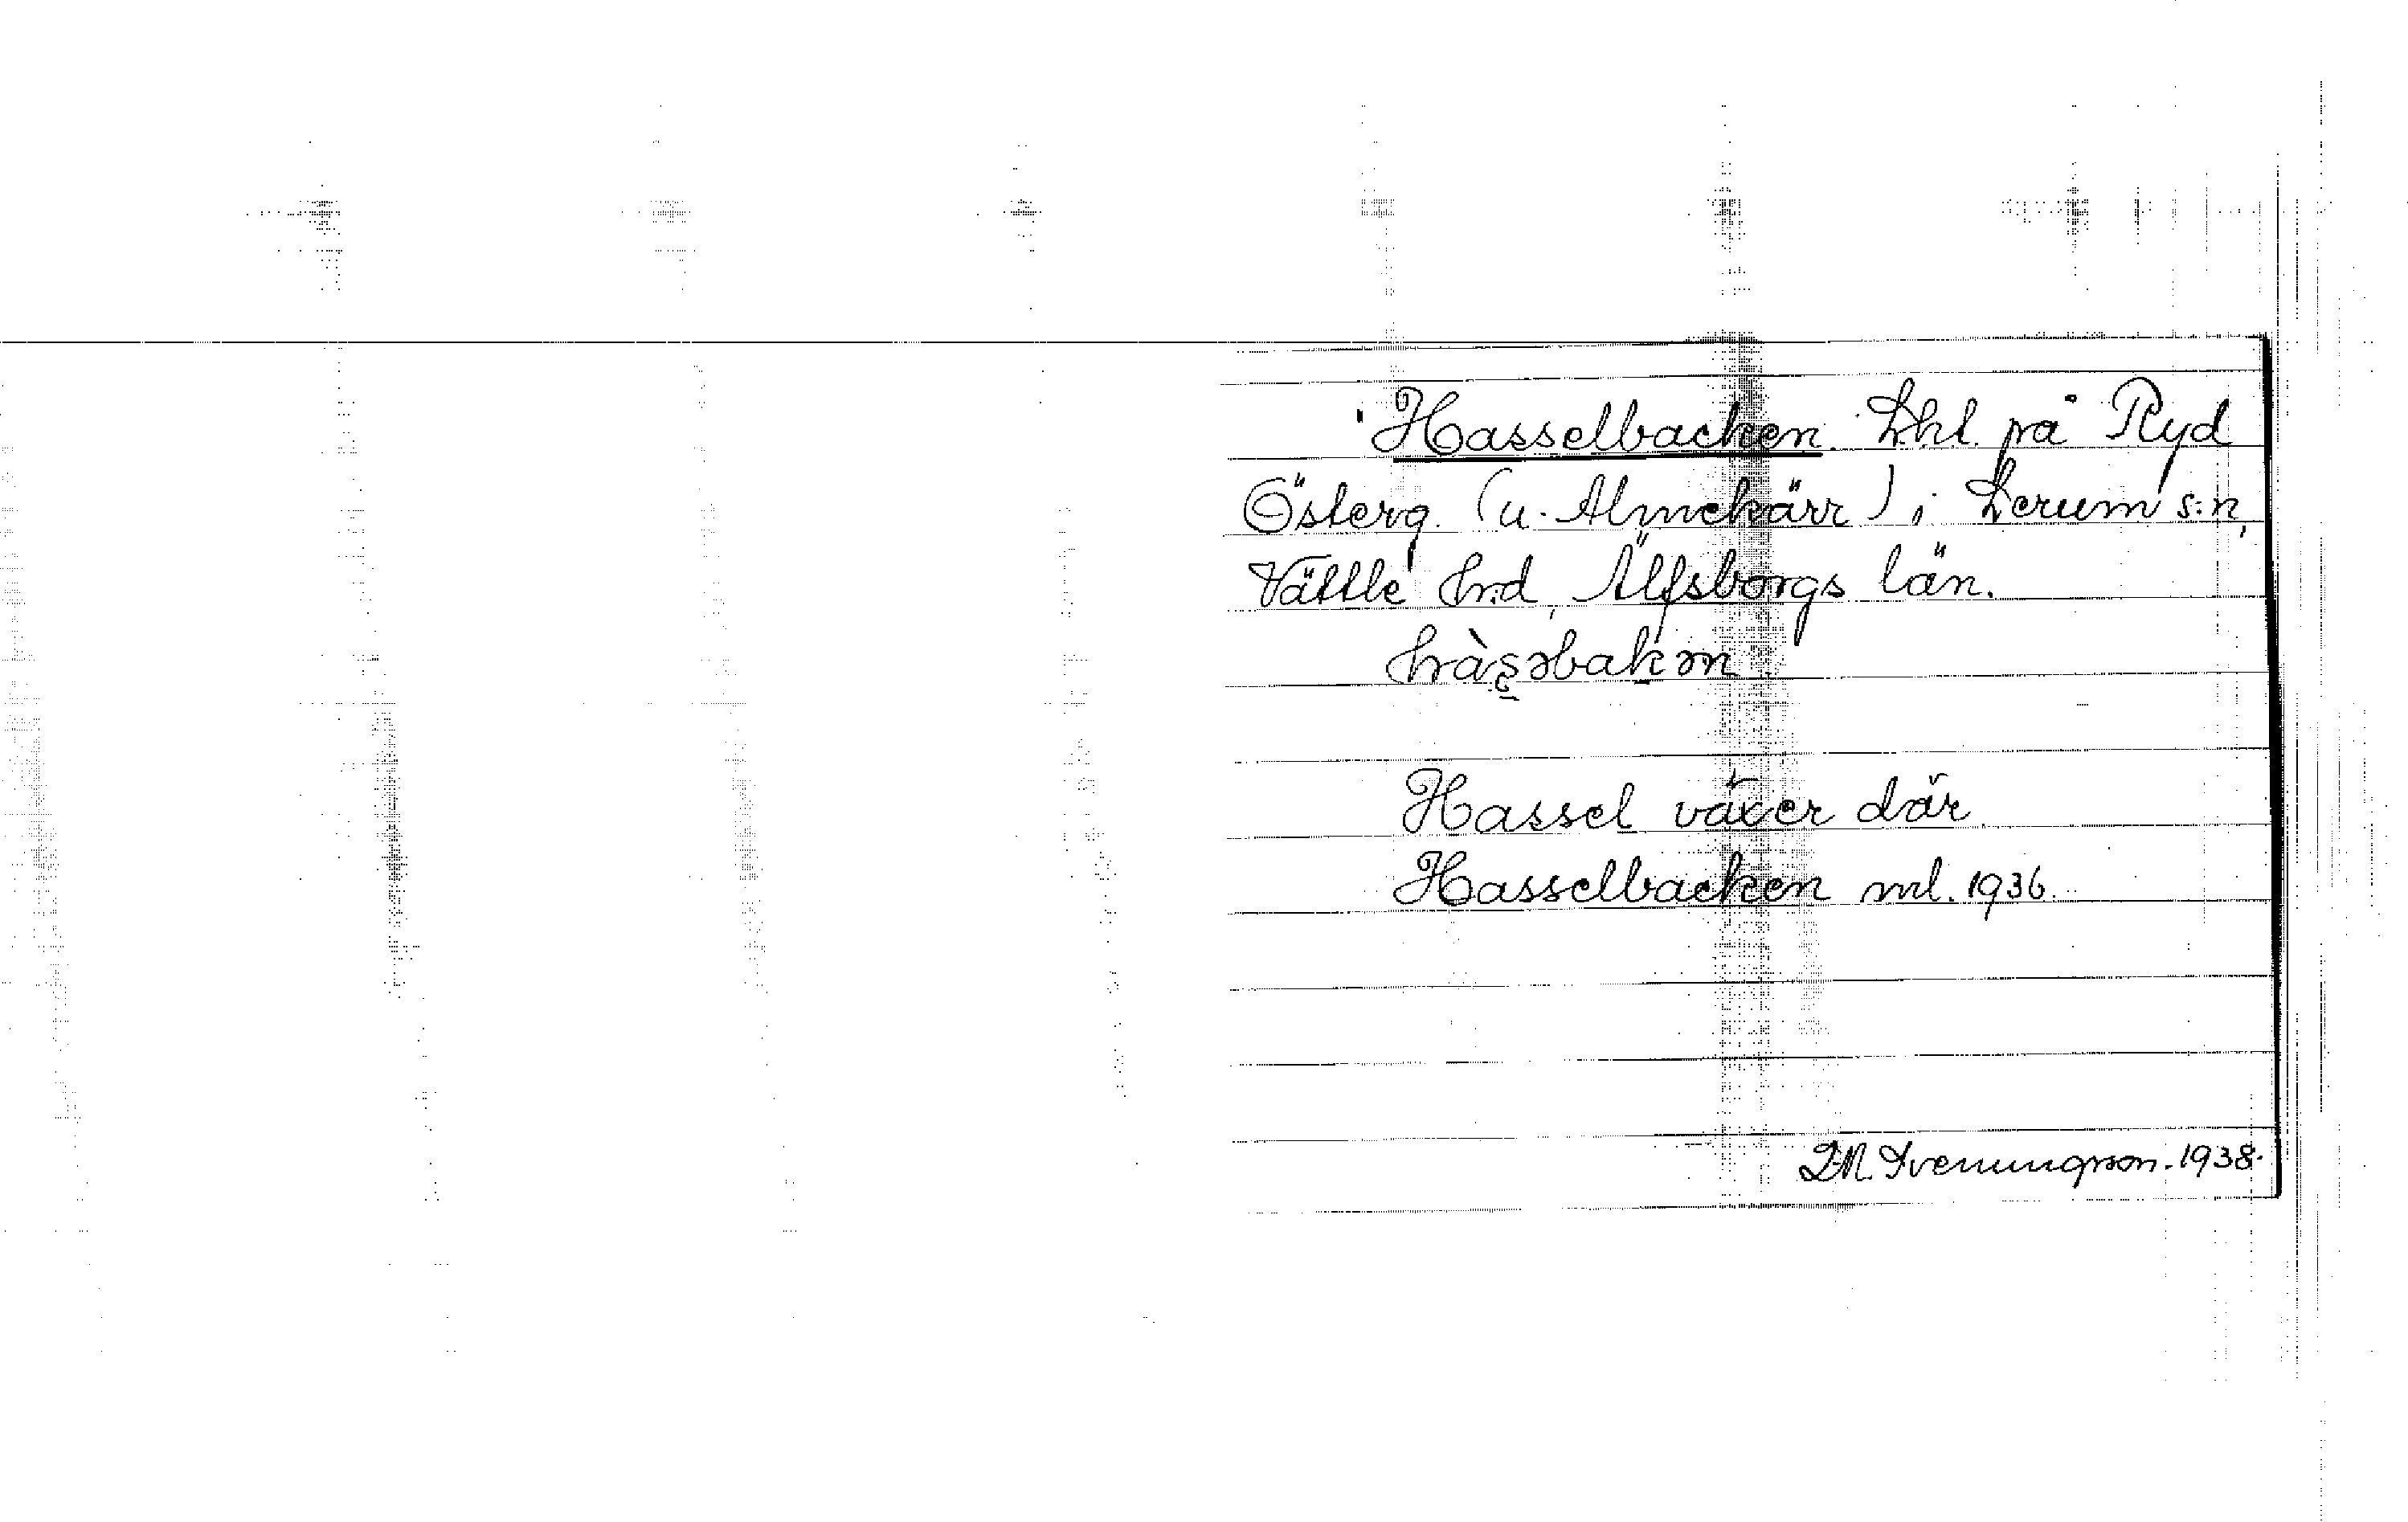 Hasselbacken. Lht på Ryd
Österg. (u. Almekärr) i Lerum s:n,
Vättle hrd, Älfsborgs län.
hàsəbakən
Hassel växer där.
Hasselbacken ml. 1936.
Sveningson. 1938.